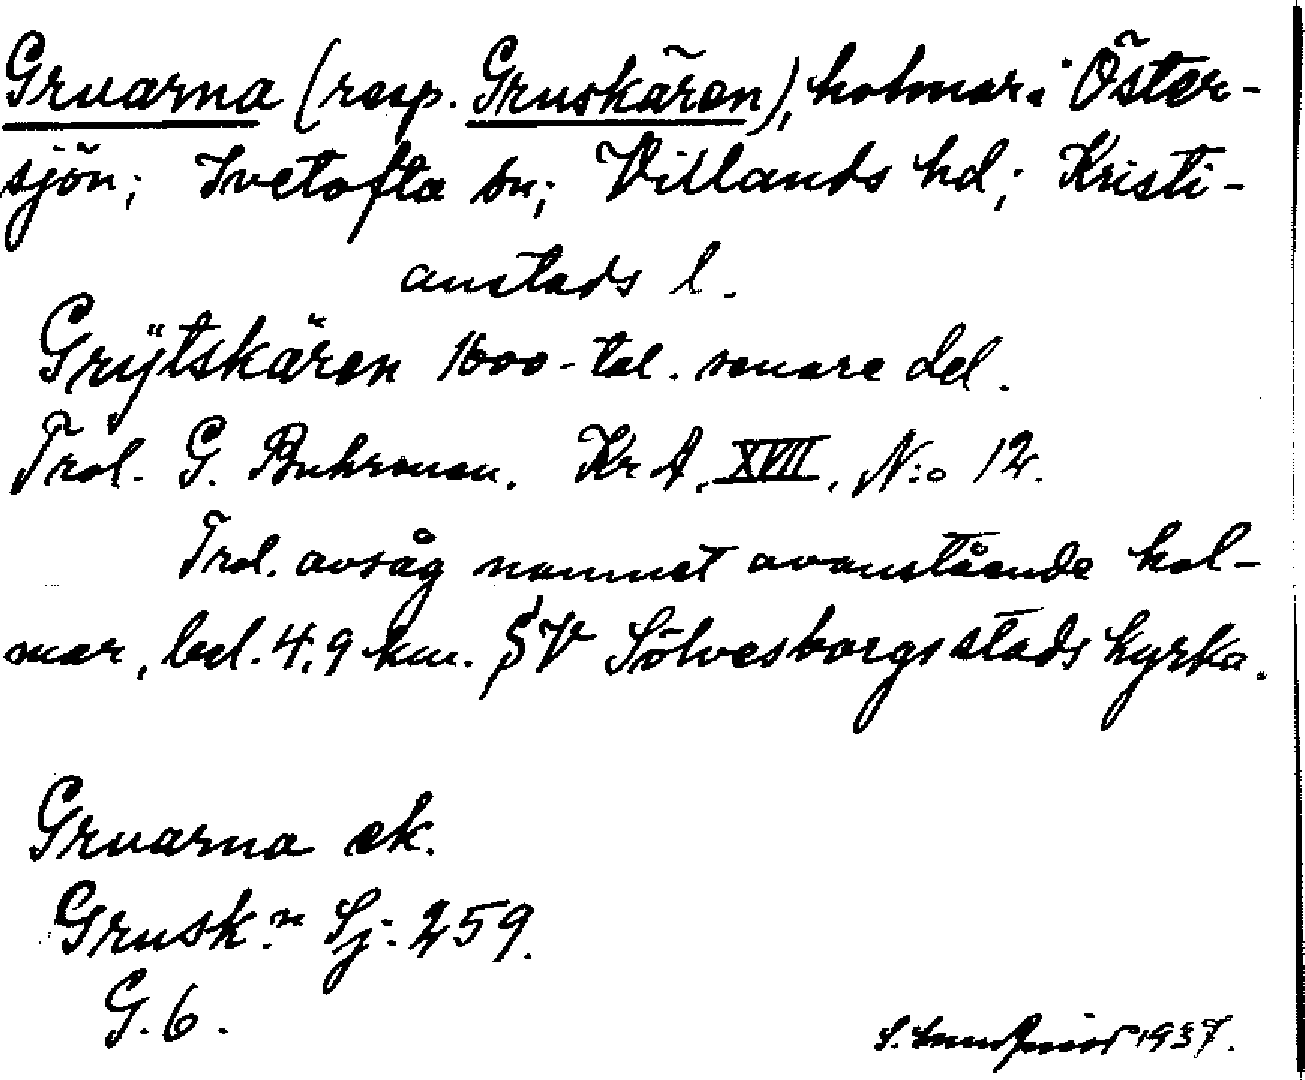 Gruarna (resp. Gruskären), holmar i Öster-
sjön; Ivetofta sn; Villands hd; Kristi-
anstads l.
Grÿtskären 1600-tal. senare del.
Trol. G. Buhrman. Kr A. XVII, N:o 12.
Trol. avsåg namnet ovanstående hol-
mar, bel. 4,9 km. SV Sölvesborgs stads kyrka.
Gruarna ek.
Grusk:n Sj. 259.
G. 6.
S. 1937.